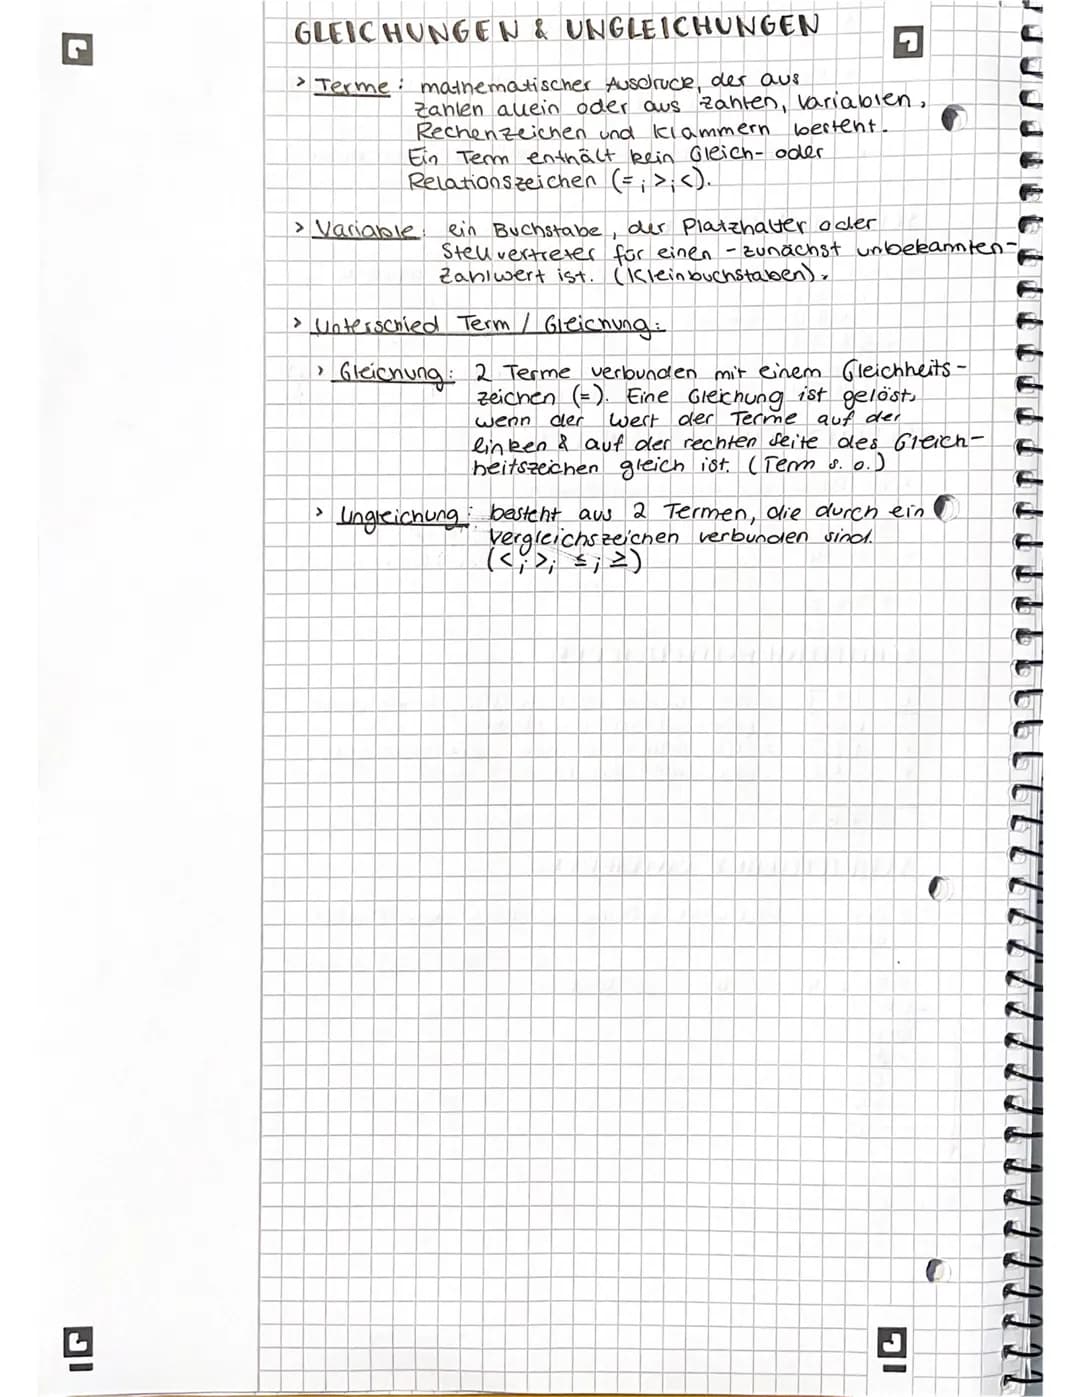 GLEICHUNGEN & UNGLEICHUNGEN
> Terme: mathematischer Ausdruck, der aus
Zahlen allein oder aus Zahlen, Variablen,
Rechenzeichen und Klammern besteht.
Ein Term enthält kein Gleich- oder
Relationszeichen (=;>;<).
> Variable: ein Buchstabe, der Platzhalter oder
Stellvertreter für einen -zunächst unbekannten-
Zahlwert ist. (Kleinbuchstaben).
> Unterschied Term / Gleichung:
> Gleichung: 2 Terme verbunden mit einem Gleichheits-
zeichen (=). Eine Gleichung ist gelöst,
wenn der Wert der Terme auf der
linken & auf der rechten Seite des Gleich-
heitszeichen gleich ist. (Term s. o.)
> Ungleichung: besteht aus 2 Termen, die durch ein
Vergleichszeichen verbunden sind.
(<;>; ≤;≥)